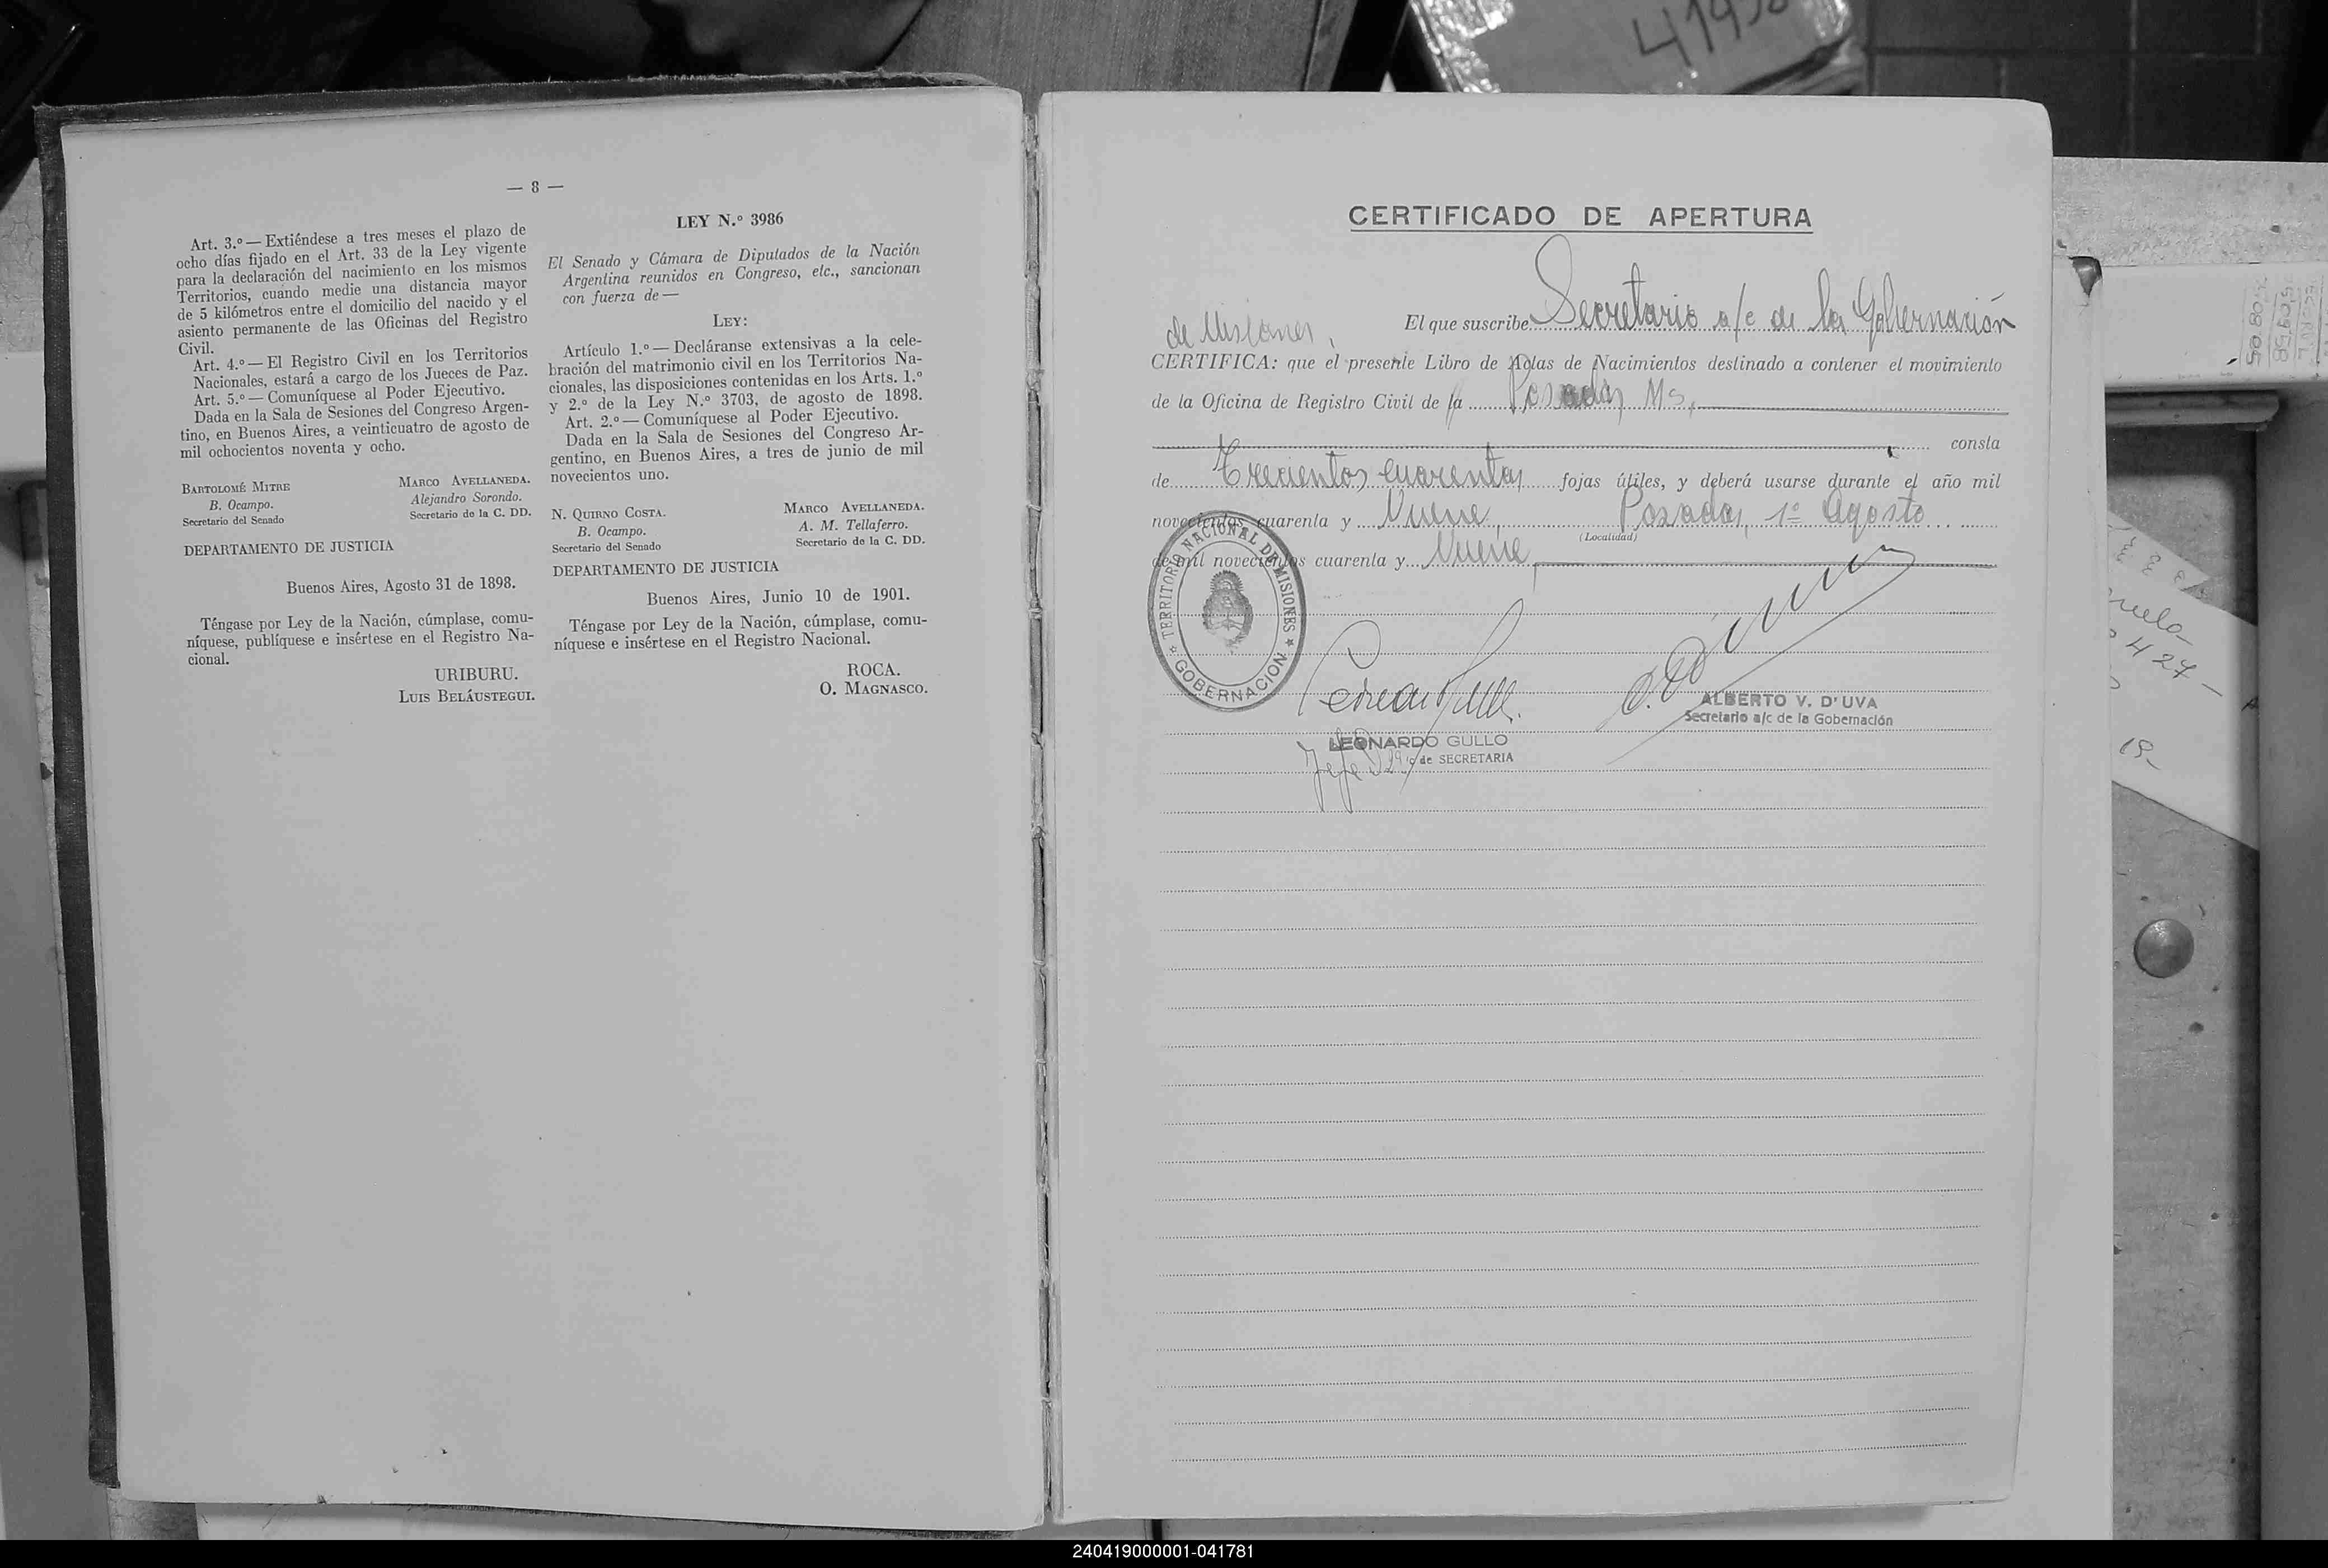 — 8 —
Art. 3.º — Extiéndese a tres meses el plazo de
ocho días fijado en el Art. 33 de la Ley vigente
para la declaración del nacimiento en los mismos
Territorios, cuando medie una distancia mayor
de 5 kilómetros entre el domicilio del nacido y el
asiento permanente de las Oficinas del Registro
Civil.
Art. 4.º — El Registro Civil en los Territorios
Nacionales, estará a cargo de los Jueces de Paz.
Art. 5.º — Comuníquese al Poder Ejecutivo.
Dada en la Sala de Sesiones del Congreso Argen-
tino, en Buenos Aires, a veinticuatro de agosto de
mil ochocientos noventa y ocho.
BARTOLOMÉ MITRE
B. Ocampo.
Secretario del Senado
MARCO AVELLANEDA.
Alejandro Sorondo.
Secretario de la C. DD.
DEPARTAMENTO DE JUSTICIA
Buenos Aires, Agosto 31 de 1898.
Téngase por Ley de la Nación, cúmplase, comu-
níquese, publíquese e insértese en el Registro Na-
cional.
URIBURU.
LUIS BELÁUSTEGUI.
LEY N.º 3986
El Senado y Cámara de Diputados de la Nación
Argentina reunidos en Congreso, etc., sancionan
con fuerza de —
LEY:
Artículo 1.º — Decláranse extensivas a la cele-
bración del matrimonio civil en los Territorios Na-
cionales, las disposiciones contenidas en los Arts. 1.º
y 2.º de la Ley N.º 3703, de agosto de 1898.
Art. 2.º — Comuníquese al Poder Ejecutivo.
Dada en la Sala de Sesiones del Congreso Ar-
gentino, en Buenos Aires, a tres de junio de mil
novecientos uno.
N. QUIRNO COSTA.
B. Ocampo.
Secretario del Senado
MARCO AVELLANEDA.
A. M. Tellaferro.
Secretario de la C. DD.
DEPARTAMENTO DE JUSTICIA
Buenos Aires, Junio 10 de 1901.
Téngase por Ley de la Nación, cúmplase, comu-
níquese e insértese en el Registro Nacional.
ROCA.
O. MAGNASCO.
CERTIFICADO DE APERTURA
El que suscribe Secretario a/c de la Gobernación
de Misiones,
CERTIFICA: que el presente Libro de Actas de Nacimientos destinado a contener el movimiento
de la Oficina de Registro Civil de la Posadas Ms,
consta
de Trecientos cuarenta fojas útiles, y deberá usarse durante el año mil
novecientos cuarenta y Nueve, Posadas, 1º Agosto
(Localidad)
de mil novecientos cuarenta y Nueve
TERRITORIO NACIONAL DE MISIONES
GOBERNACION
ALBERTO V. D'UVA
Secretario a/c de la Gobernación
LEONARDO GULLO
Jefe de SECRETARIA
240419000001-041781